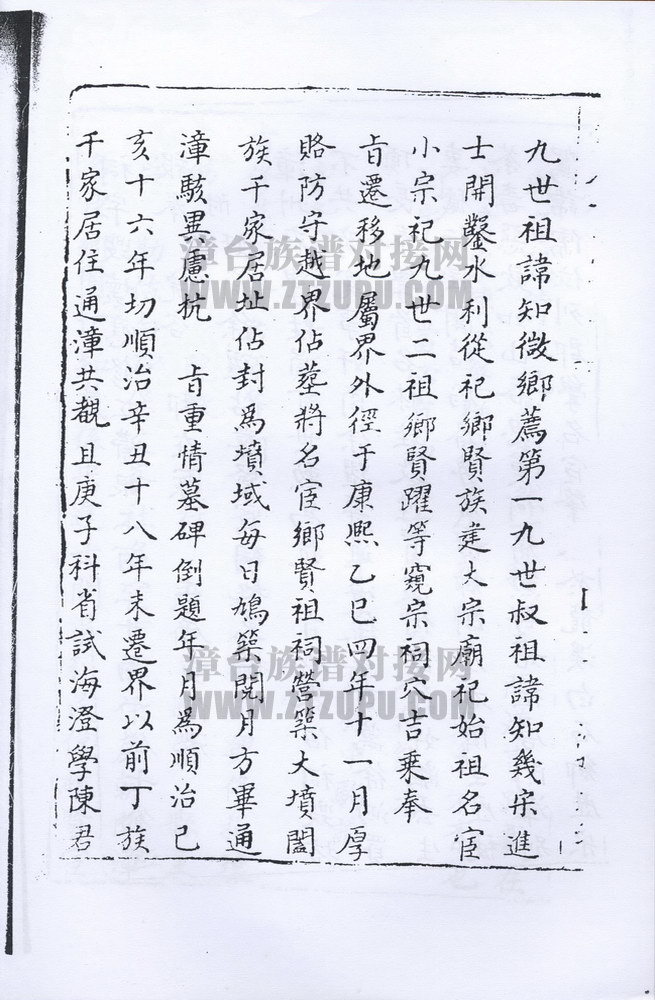 九世祖諱知微鄉薦第一九世叔祖諱知幾宋進
士開鑿水利從祀鄉賢族建大宗廟祀始祖名宦
小宗祀九世二祖鄉賢躍等窺宗祠穴吉乘奉
旨遷移地屬界外徑于康熙乙巳四年十一月厚
賂防守越界佔塟將名宦鄉賢祖祠營築大墳闔
族千家居址佔封為墳域每日鳩築閱月方畢通
漳駭異慮抗　旨重情墓碑倒題年月為順治己
亥十六年切順治辛丑十八年未遷界以前丁族
千家居住通漳共覩且庚子科省試海澄學陳君
漳台族谱对接网
WWW.ZTZUPU.COM
漳台族谱对接网
WWW.ZTZUPU.COM